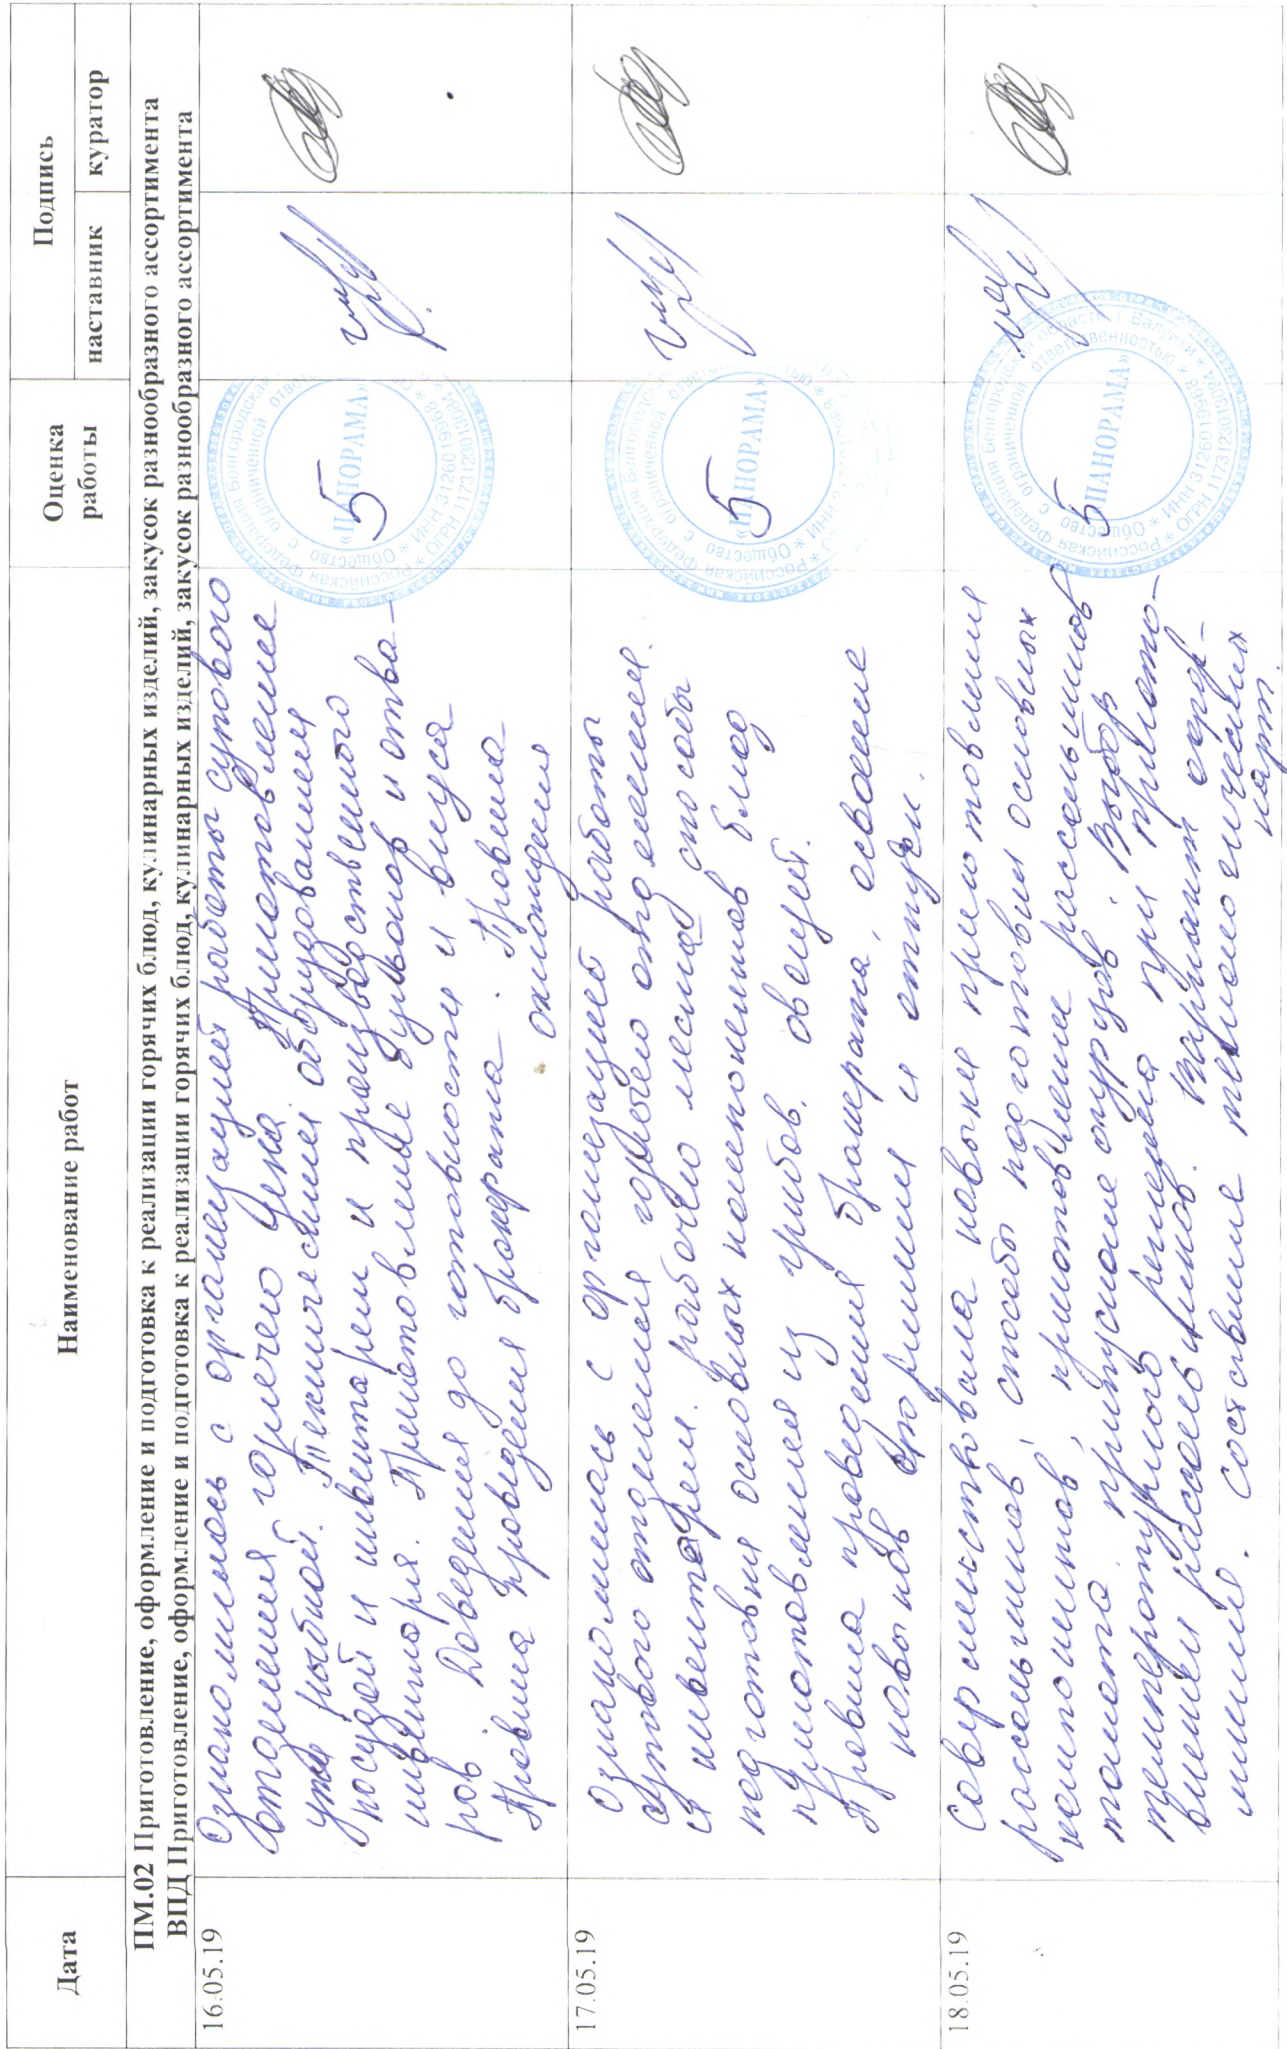 Дата
Наименование работ
Оценка работы
Подпись
наставник
куратор
ПМ.02 Приготовление, оформление и подготовка к реализации горячих блюд, кулинарных изделий, закусок разнообразного ассортимента
ВПД Приготовление, оформление и подготовка к реализации горячих блюд, кулинарных изделий, закусок разнообразного ассортимента
16.05.19
Ознакомилась с организацией работы супового
отделения горячего цеха. Приготовление
ухи рыбной. Технические оборудования
посудой и инвентарем и производственного
инвентаря. Приготовление бульонов и отва-
ров. Доведения до готовности и вкуса
Правила проведения бракеража. Правила
охлаждения
5
Российская Федерация Белгородская
Общество с ограниченной
«ПАНОРАМА»
* ИНН 3126019968 *
* ОГРН 1173123013084 *
17.05.19
Ознакомилась с организацией работы
супового отделения горячего отделения.
и инвентарем. рабочего места способы
подготовки основных компонентов блюд
приготовления из грибов, овощей.
Правила проведения бракеража, освоение
навыков оформления и отпуска.
5
Российская Федерация Белгородск
Общество с ограниченной
«ПАНОРАМА»
18.05.19
Совершенствовала навыки приготовления
рассольников, способы подготовки основных
компонентов, приготовления рассольников
томата, припускание огурцов. Выбор
температурного режима при приготов-
лении рассольников. Вариант офор-
мления. составление технологических
карт.
5
Российская Федерация Белгородская область г Валуйки
Общество с ограниченной ответственностью
«ПАНОРАМА»
* ИНН 3126019968 *
* ОГРН 1173123013084 *